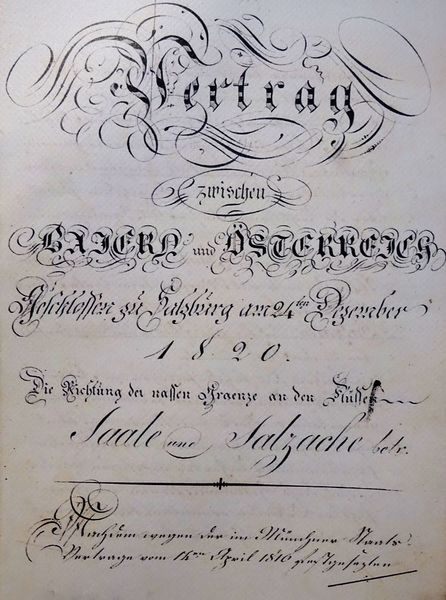 Vertrag
zwischen
BAIERN und ÖSTERREICH
Geschlossen zu Salzburg am 24ten Dezember
1820.
Die Richtung der nassen Graenze an den Flüssen
Saale und Salzache betr.
Nachdem wegen der im Münchner Staats-
Vertrage vom 14ten April 1816 festgesezten